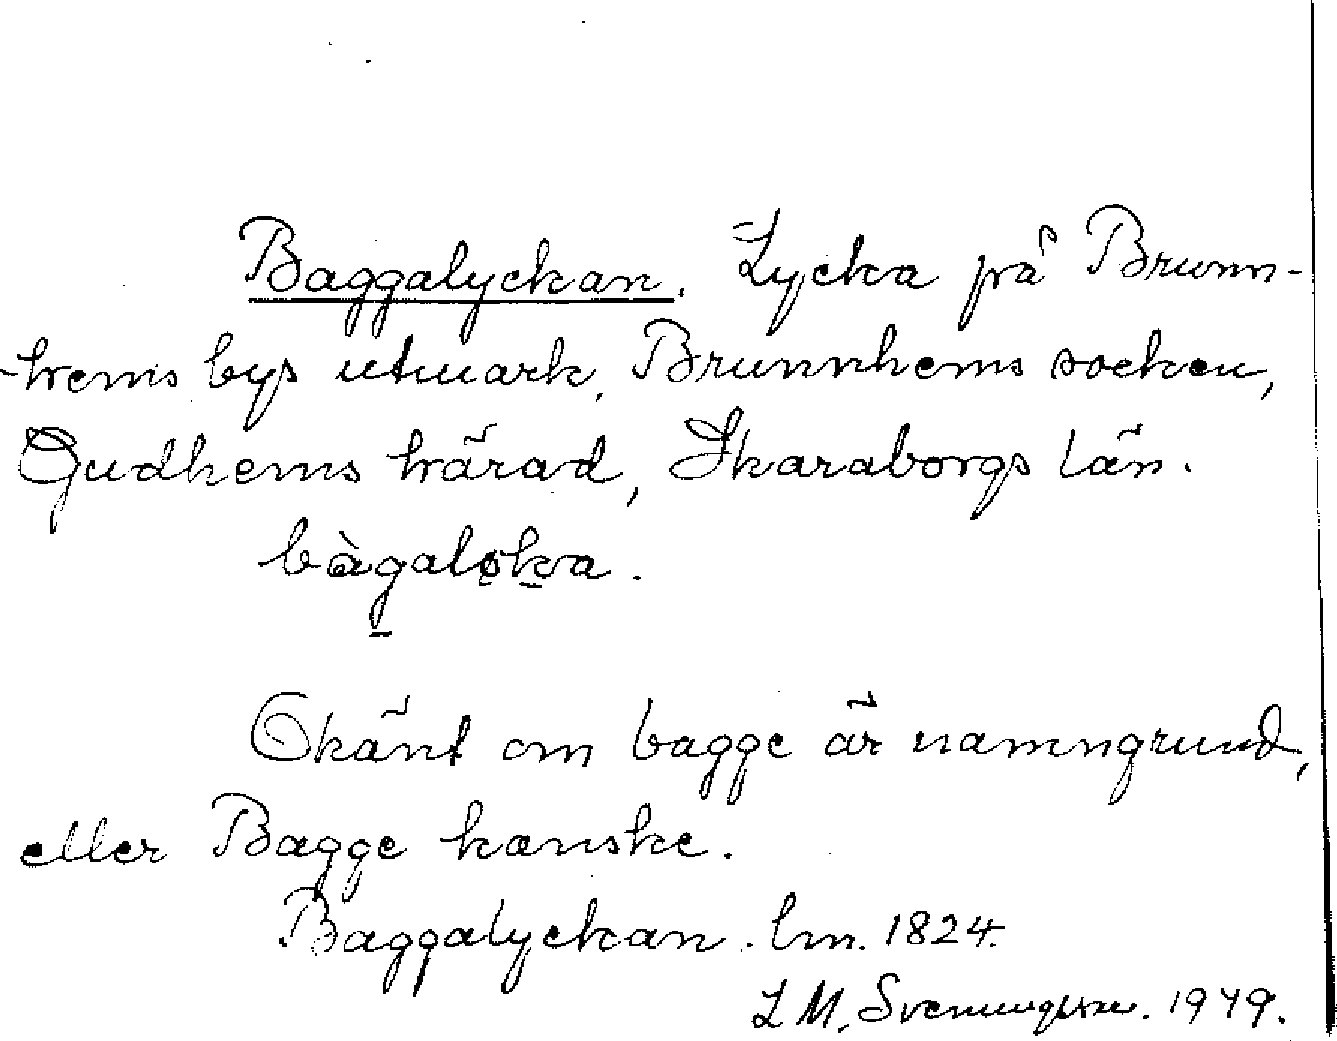 Baggalyckan. Lycka på Brunn-
-hems bys utmark, Brunnhems socken,
Gudhems härad, Skaraborgs län.
bàgaløka.
Okänt om bagge är namngrund,
eller Bagge kanske.
Baggalyckan. lm. 1824.
L M. Svenungsson. 1949.